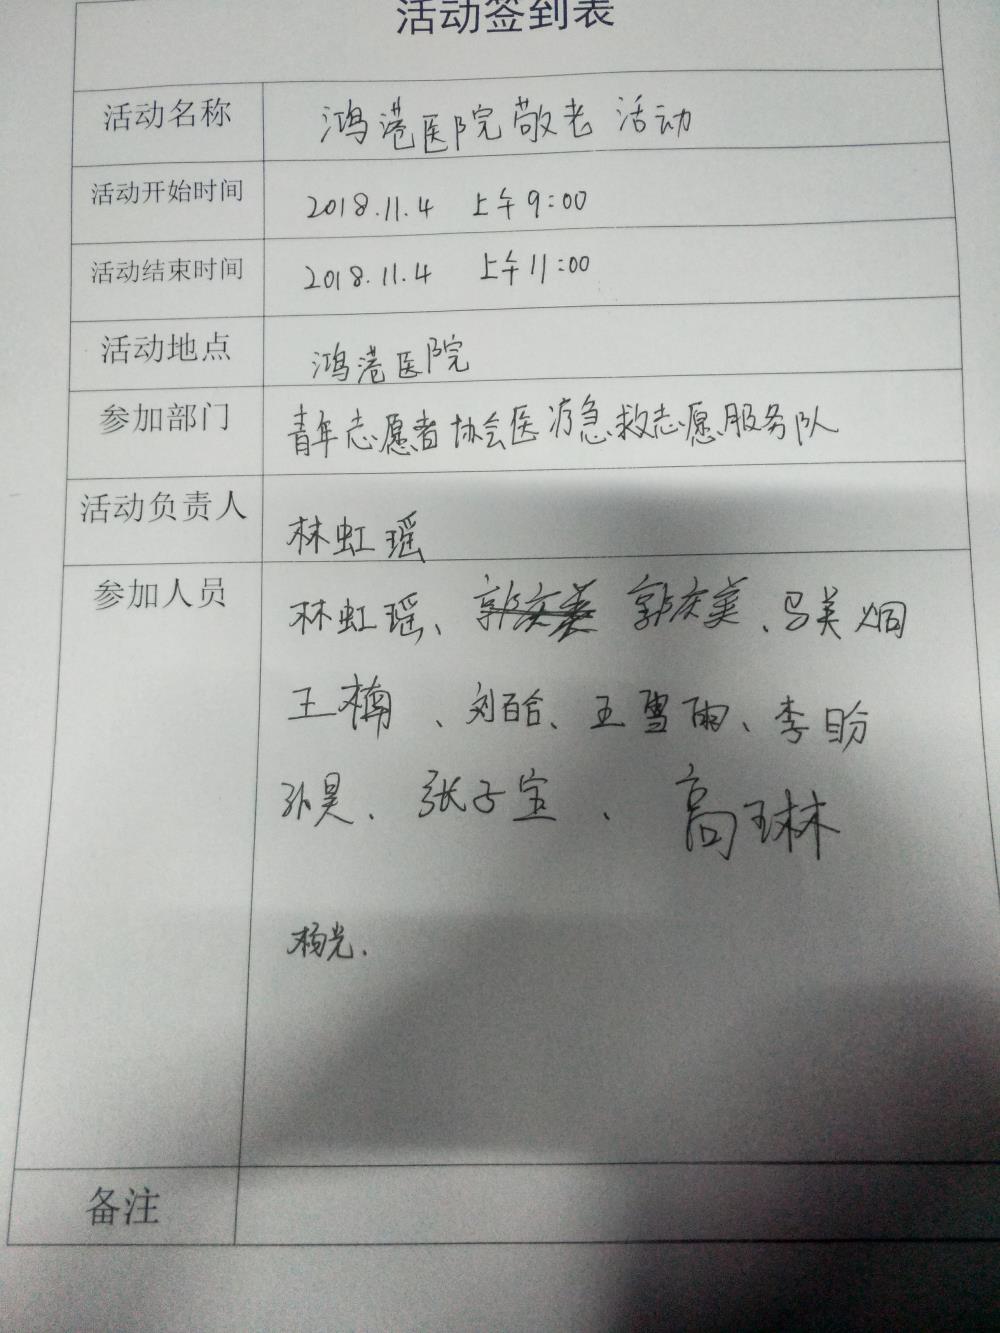 活动签到表
活动名称 鸿港医院敬老活动
活动开始时间 2018.11.4 上午9:00
活动结束时间 2018.11.4 上午11:00
活动地点 鸿港医院
参加部门 青年志愿者协会医疗急救志愿服务队
活动负责人 林虹瑶
参加人员 林虹瑶、郭庆美、马美烟
王楠、刘百合、王雪雨、李盼
孙昊、张子宝、高玉林
杨光.
备注